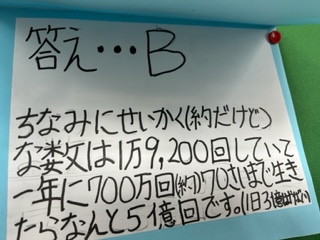 答え…B
ちなみにせいかく(約だけど)
な数は1万9,200回していて
一年に700万回(約)70さいまで生き
たらなんと5億回です。